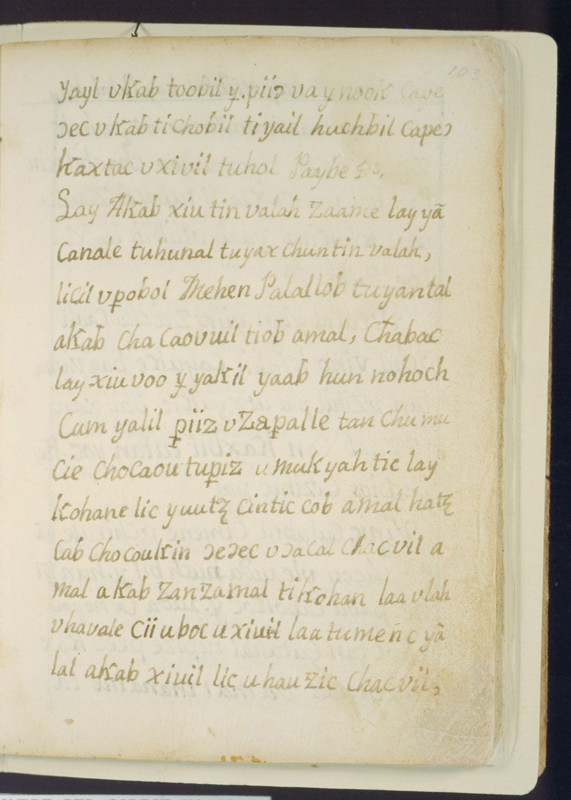 103
yayl v kab toobil y. piiɔ va y nook cape
ɔec v kab ti chobil ti yail huchbil capeɔ
kaxtac v xivil tu hol Paybe
Lay Akab xiu tin valah zaame lay yã
canale tu hunal tu yax chun tin valah,
licil vpobol Mehen Palallob tu yantal
akab cha caovuil tiob amal, Chabac
lay xiu voo y yakil yaab hun nohoch
Cum yalil piiz v zapalle tan chu mu
cie chocaou tu piz u muk yah tic lay
kohane lic y uutz cintic cob amal hatz
cab cho coukin ɔeɔec v ɔacal chacvil a
mal akab zanzamal ti kohan laa v lah
v havale cii u boc u xiuil laa tumen c yã
lal akab xiuil lic u hau zic chacvil,